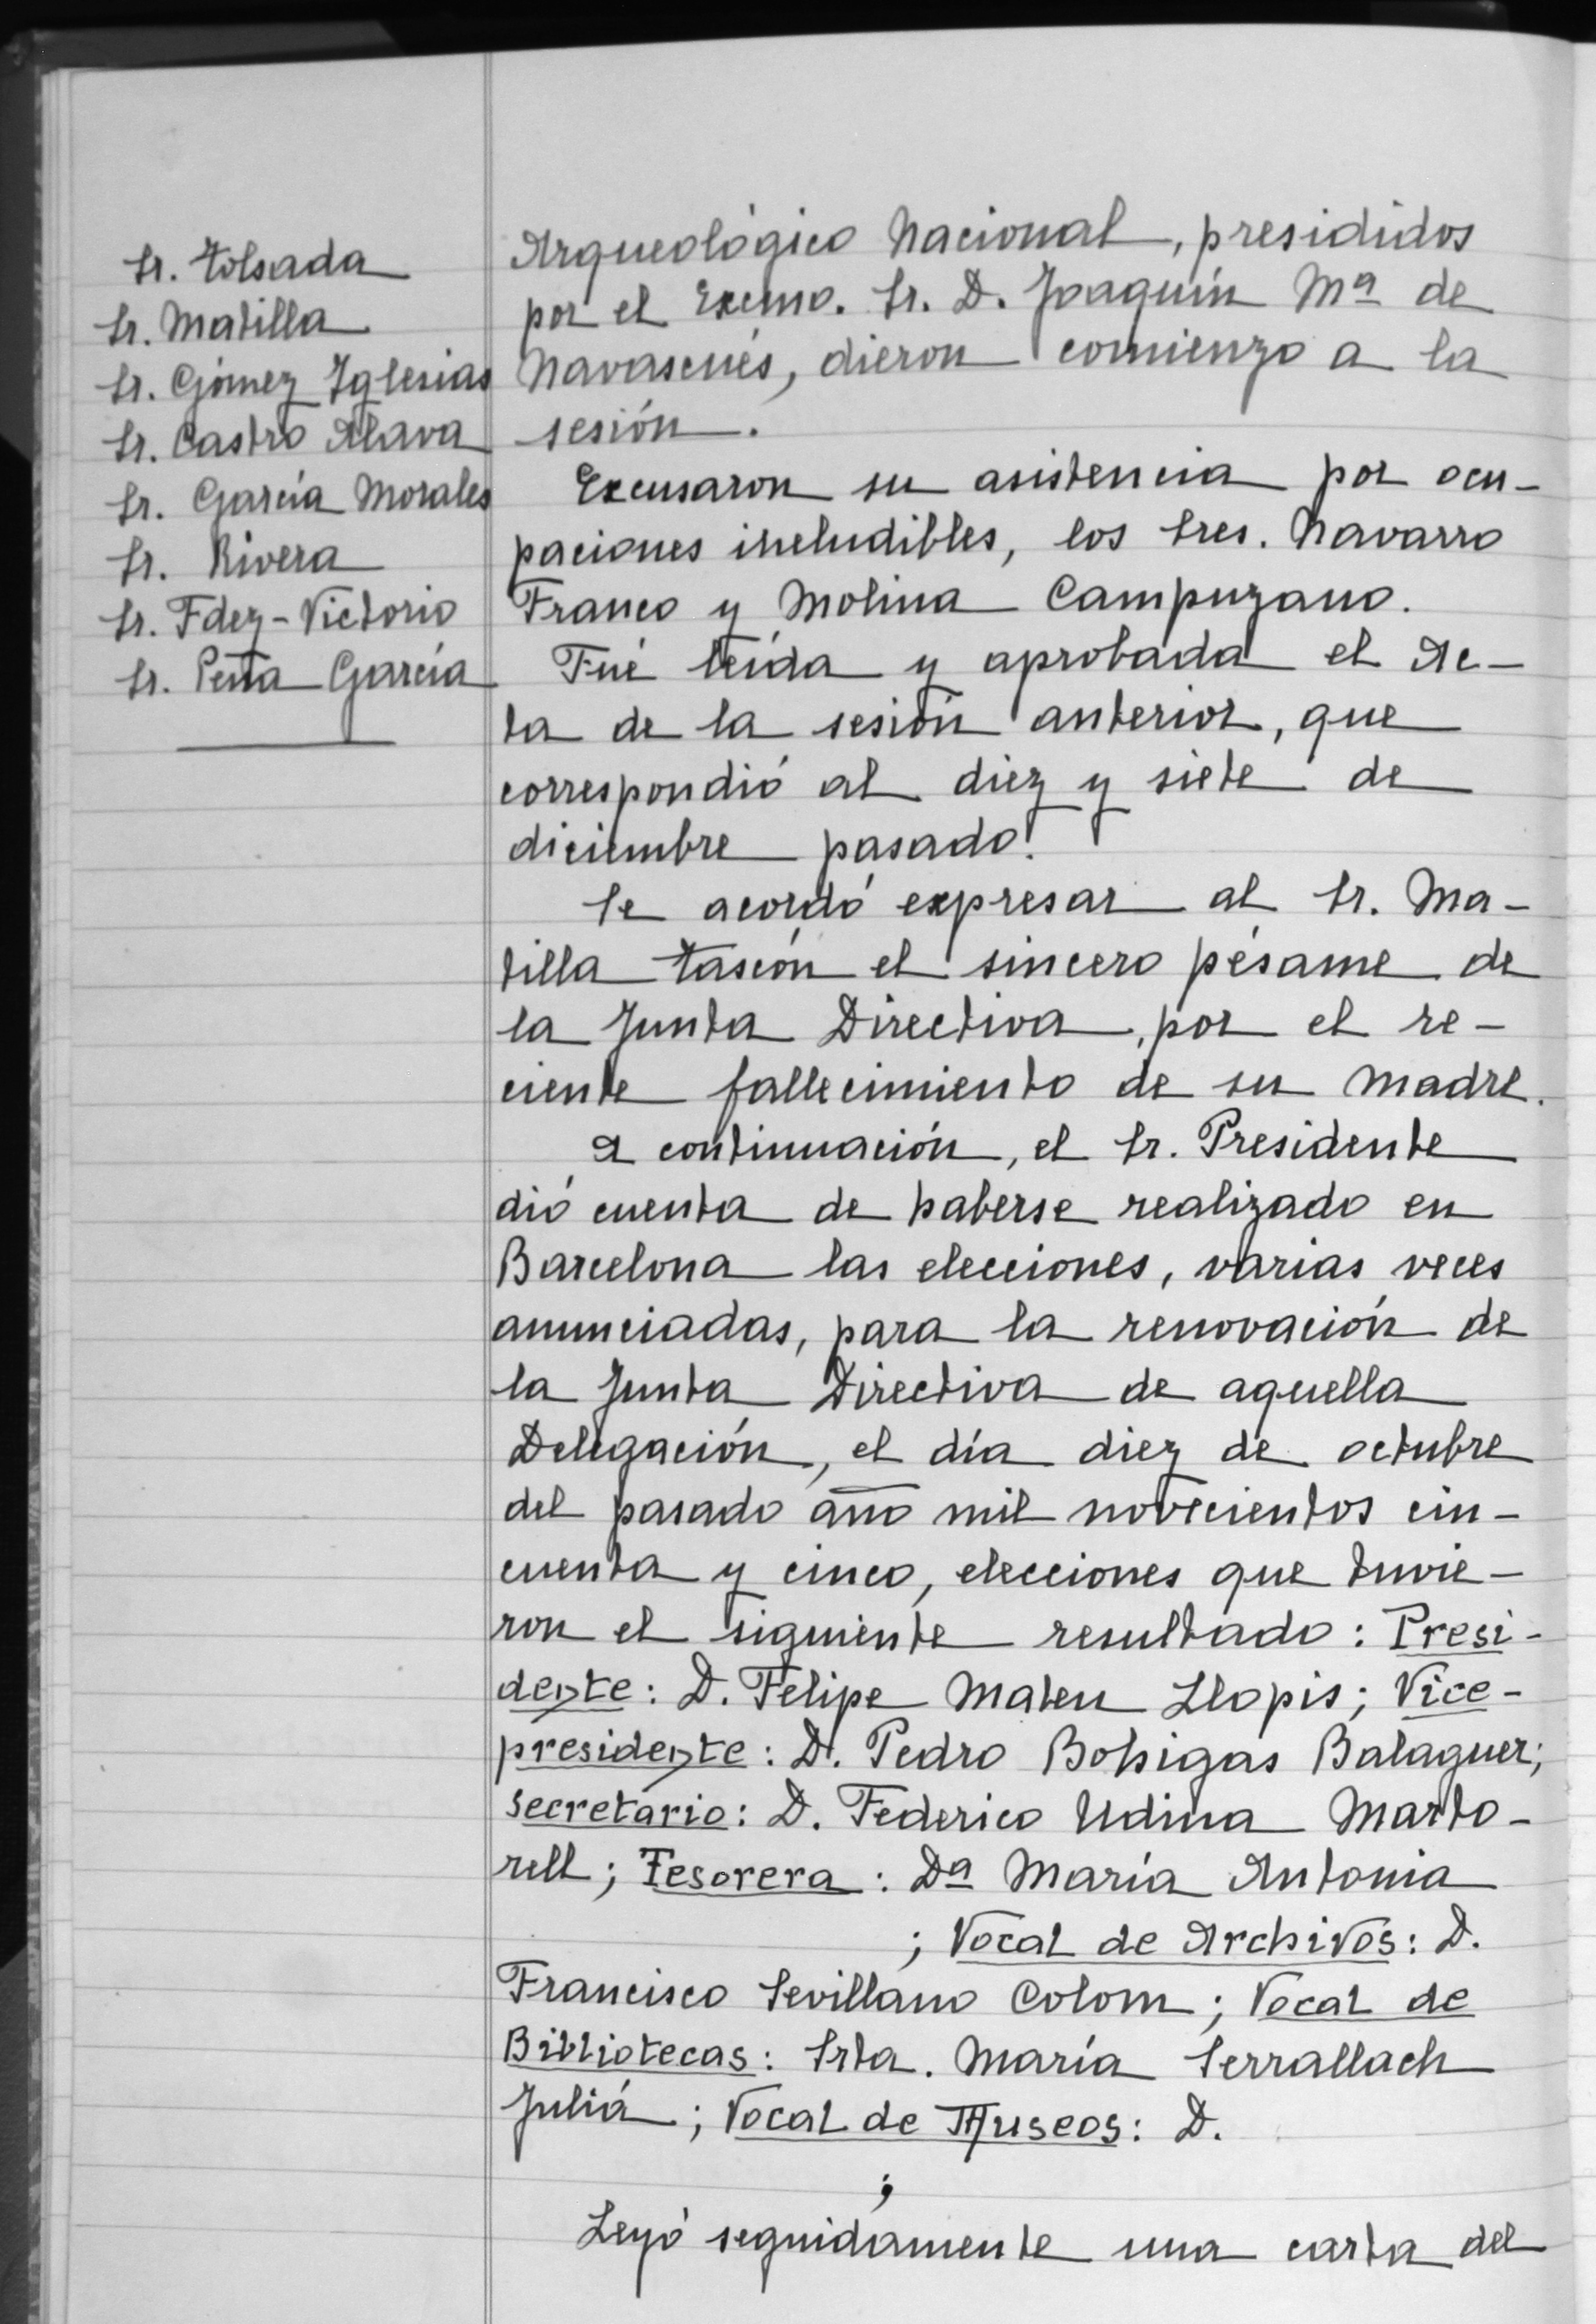 Sr. Tolsada
Sr. Matilla
Sr. Gómez Iglesias
Sr. Castro Alava
Sr. García Morales
Sr. Rivera
Sr. Fdez-Victorio
Sr. Peña García
Arqueológico Nacional, presididos
por el Excmo. Sr. D. Joaquín Mª de
Navascués, dieron comienzo a la
sesión.
Excusaron su asistencia por ocu-
paciones ineludibles, los Sres. Navarro
Franco y Molina Campuzano.
Fué leída y aprobada el Ac-
ta de la sesión anterior, que
correspondió al diez y siete de
diciembre pasado.
Se acordó expresar al Sr. Ma-
tilla Tascón el sincero pésame de
la Junta Directiva, por el re-
ciente fallecimiento de su madre.
A continuación, el Sr. Presidente
dió cuenta de haberse realizado en
Barcelona las elecciones, varias veces
anunciadas, para la renovación de
la Junta Directiva de aquella
Delegación, el día diez de octubre
del pasado año mil novecientos cin-
cuenta y cinco, elecciones que tuvie-
ron el siguiente resultado: Presi-
dente: D. Felipe Mateu Llopis; Vice-
presidente: D. Pedro Bohigas Balaguer;
Secretario: D. Federico Udina Marto-
rell; Tesorera: Dª María Antonia
; Vocal de Archivos: D.
Francisco Sevillano Colom; Vocal de
Bibliotecas: Srta. María Serrallach
Juliá; Vocal de Museos: D.
;
Leyó seguidamente una carta del